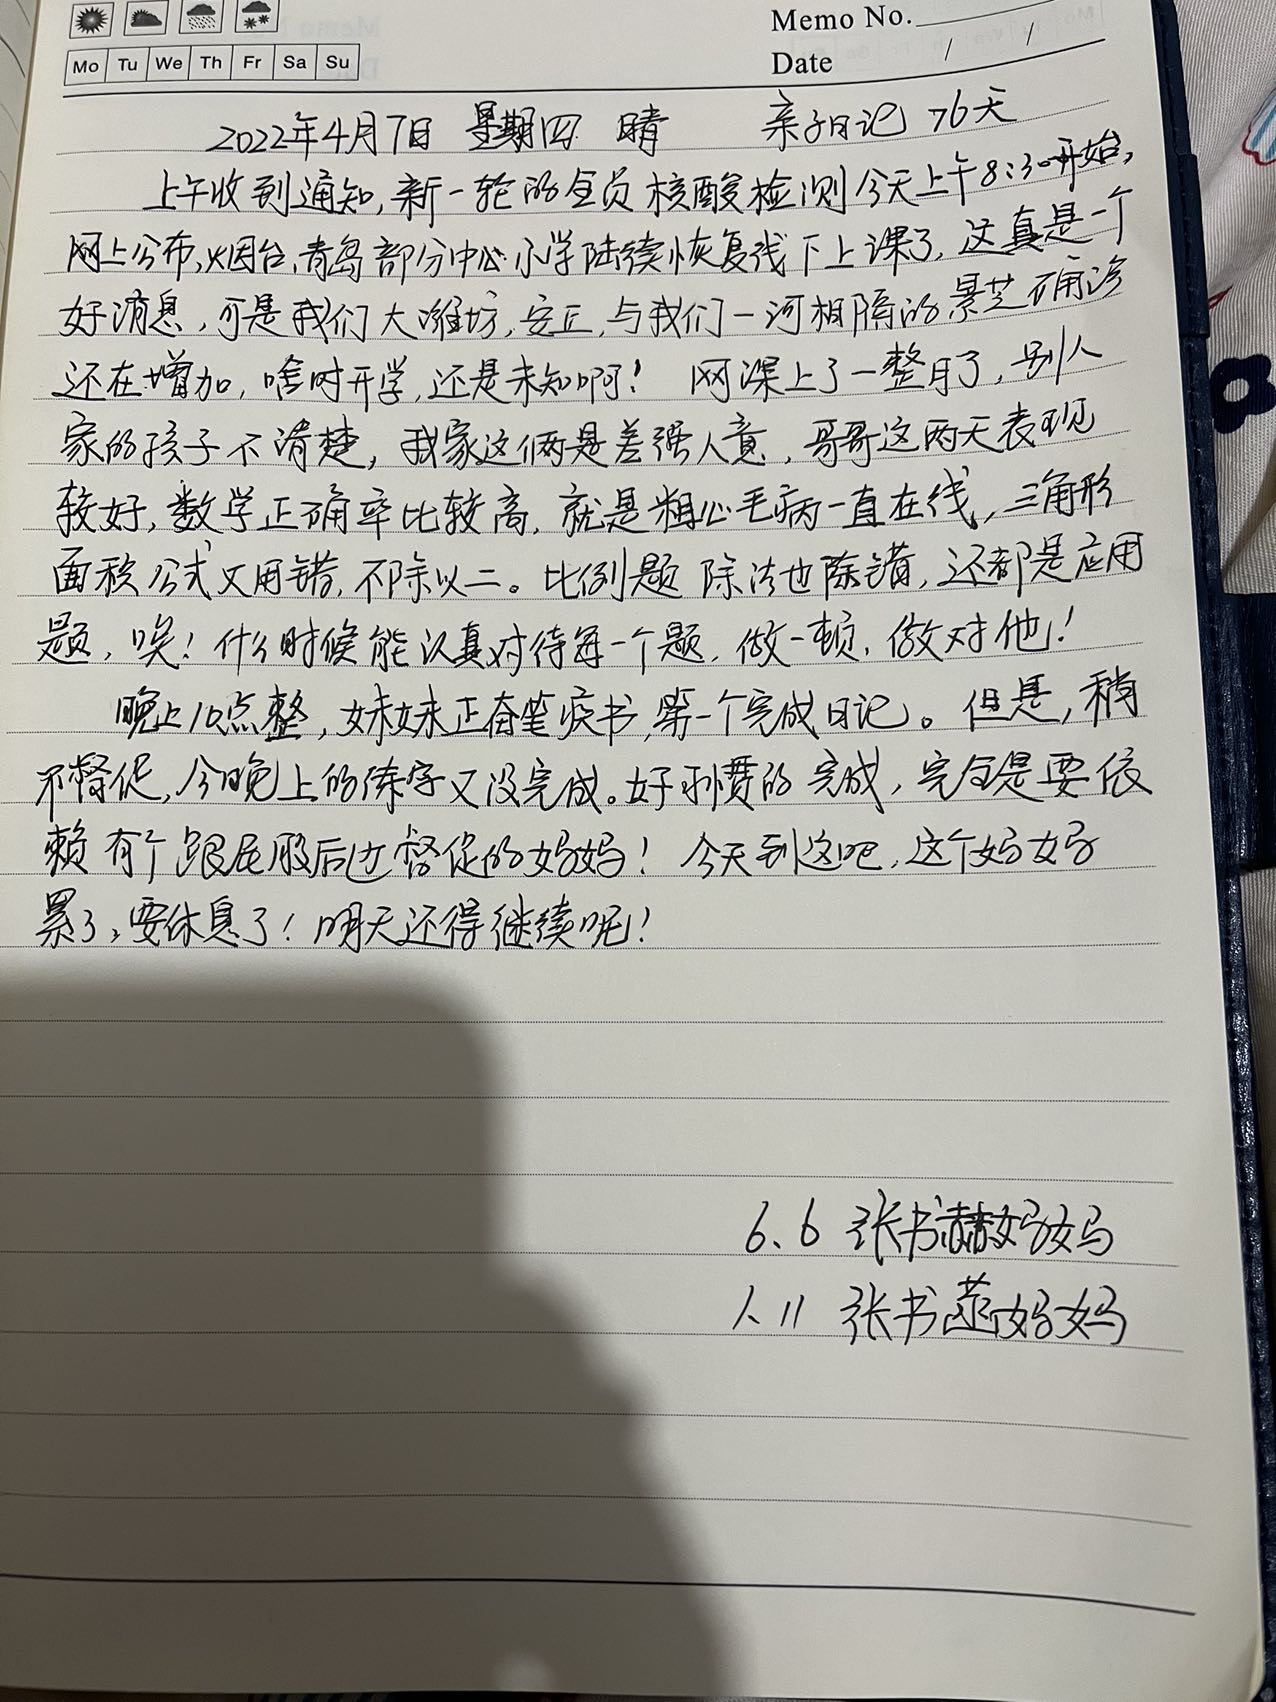 Memo No.
Mo Tu We Th Fr Sa Su
Date / /
2022年4月7日 星期四 晴 亲子日记 76天
上午收到通知,新一轮的全员核酸检测今天上午8:30开始,
网上公布,烟台,青岛部分中心小学陆续恢复线下上课了,这真是一个
好消息,可是我们大潍坊,安丘,与我们一河相隔的景芝确诊
还在增加,啥时开学,还是未知啊! 网课上了一整月了,别人
家的孩子不清楚,我家这俩是差强人意,哥哥这两天表现
较好,数学正确率比较高,就是粗心毛病一直在线,三角形
面积公式又用错,不除以二。比例题除法也除错,还都是应用
题,唉!什么时候能认真对待每一个题,做一顿,做对他!
晚上10点整,妹妹正奋笔疾书,第一个完成日记。但是,稍
不督促,今晚上的练字又没完成。好习惯的完成,完全是要依
赖有个跟屁股后边督促的妈妈!今天到这吧,这个妈妈
累了,要休息了!明天还得继续呢!
6.6 张书赫妈妈
1.11 张书蕴妈妈